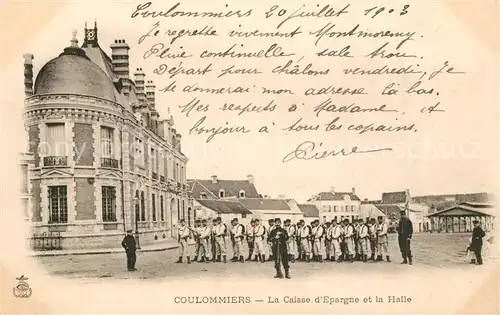 Coulommiers 20 juillet 1903
Je regrette vivement Montmorency.
Pluie continuelle, sale trou.
Départ pour Châlons vendredi, Je
te donnerai mon adresse là bas.
Mes respects à Madame, et
bonjour à tous les copains.
Pierre
COULOMMIERS - La Caisse d'Epargne et la Halle